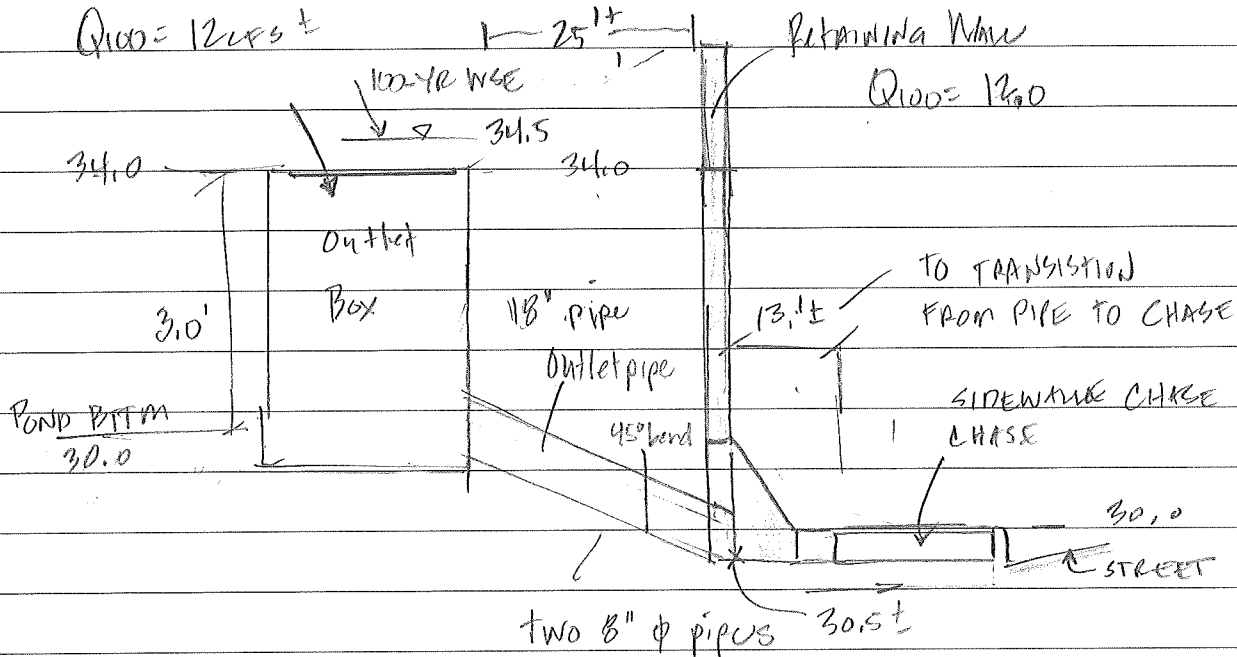 Q100= 12CFS ±
25'±
Retaining Wall
Q100= 12.0
100-YR WSE
34.5
34.0
34.0
Outlet
Box
3.0'
18" pipe
Outlet pipe
13.'±
TO TRANSISTION
FROM PIPE TO CHASE
45° bend
SIDEWALK CHASE
CHASE
POND BTTM
30.0
30.0
STREET
two 8" φ pipes
30.5±